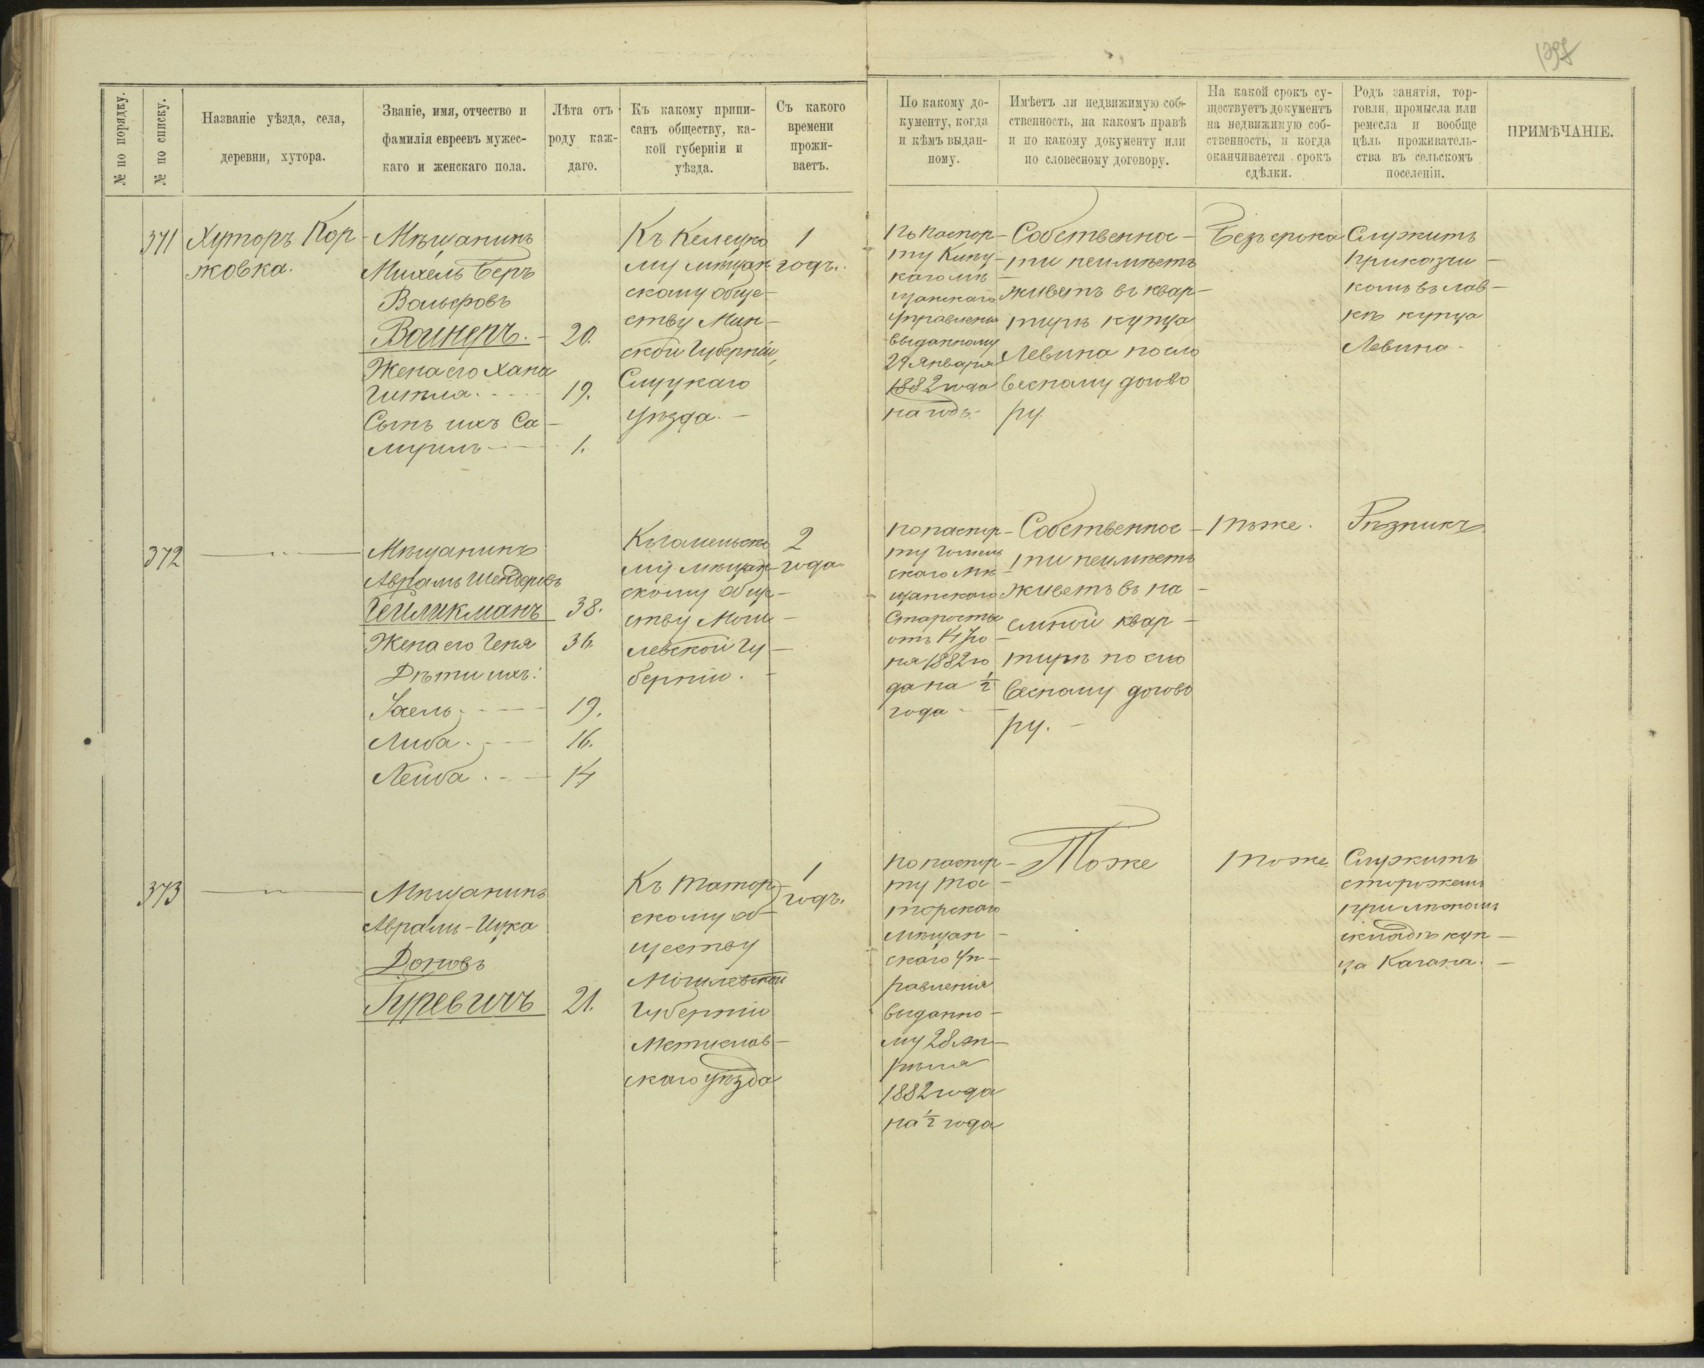 1397
№ по порядку.
№ по списку.
Названіе уѣзда, села,
деревни, хутора.
Званіе, имя, отчество и
фамилія евреевъ мужес-
каго и женскаго пола.
Лѣта отъ
роду каж-
даго.
Къ какому припи-
санъ обществу, ка-
кой губерніи и
уѣзда.
Съ какого
времени
прожи-
ваетъ.
По какому до-
кументу, когда
и кѣмъ выдан-
ному.
Имѣетъ ли недвижимую соб-
ственность, на какомъ правѣ
и по какому документу или
по словесному договору.
На какой срокъ су-
ществуетъ документъ
на недвижимую соб-
ственность, и когда
оканчивается срокъ
сдѣлки.
Родъ занятія, тор-
говли, промысла или
ремесла и вообще
цѣль проживатель-
ства въ сельскомъ
поселеніи.
ПРИМѢЧАНІЕ.
371
Хуторъ Кор-
жовка.
Мѣщанинъ
Михель Беръ
Вольфовъ
Войнеръ. - 20.
Жена его Хана
Гитля. 19.
Сынъ ихъ Са-
муилъ 1.
Къ Келецко
му мѣщан
скому обще-
ству Мин-
ской Губерніи,
Слуцкаго
уѣзда. -
1
годъ.
По паспор-
ту
каго мѣ
щанскаго
Управленія
выданному
29 Января
1882 года
на годъ.
Собственнос-
ти неимѣетъ
живетъ въ квар-
тирѣ купца
Левина посло
весному догово
ру.
Безъ срока
Служитъ
прикащи-
комъ въ лав-
кѣ купца
Левина.
372
Мѣщанинъ
Абрамъ Шендеровъ
Гейликманъ 38.
Жена его Геня 36.
Дѣти ихъ:
19.
Либа. 16.
Лейба. 14
Къ гомельско
му мѣщан-
скому общ-
ству Моги-
левской Гу-
берніи.
2
года
По паспор-
ту Гомель
скаго мѣ
щанскаго
Старосты
отъ 14 Ію
ня 1882 го
да на ½
года
Собственнос-
ти неимѣетъ
живетъ въ на-
емной квар-
тирѣ по сло
весному догово
ру. -
тоже.
Рѣзникъ
373
Мѣщанинъ
Абрамъ-Ицка
Доновъ
Гуревичъ 21.
Къ Татар
скому об-
ществу
Могилевской
Губерніи
Мстислав-
скаго уѣзда
1
годъ.
По паспор-
ту Та-
тарскаго
мѣщан-
скаго Уп-
равленія
выданно-
му 28 Ап-
рѣля
1882 года
на ½ года
Тоже
тоже
Служитъ
сторожемъ
при лѣсномъ
складѣ куп-
ца Кагана. -